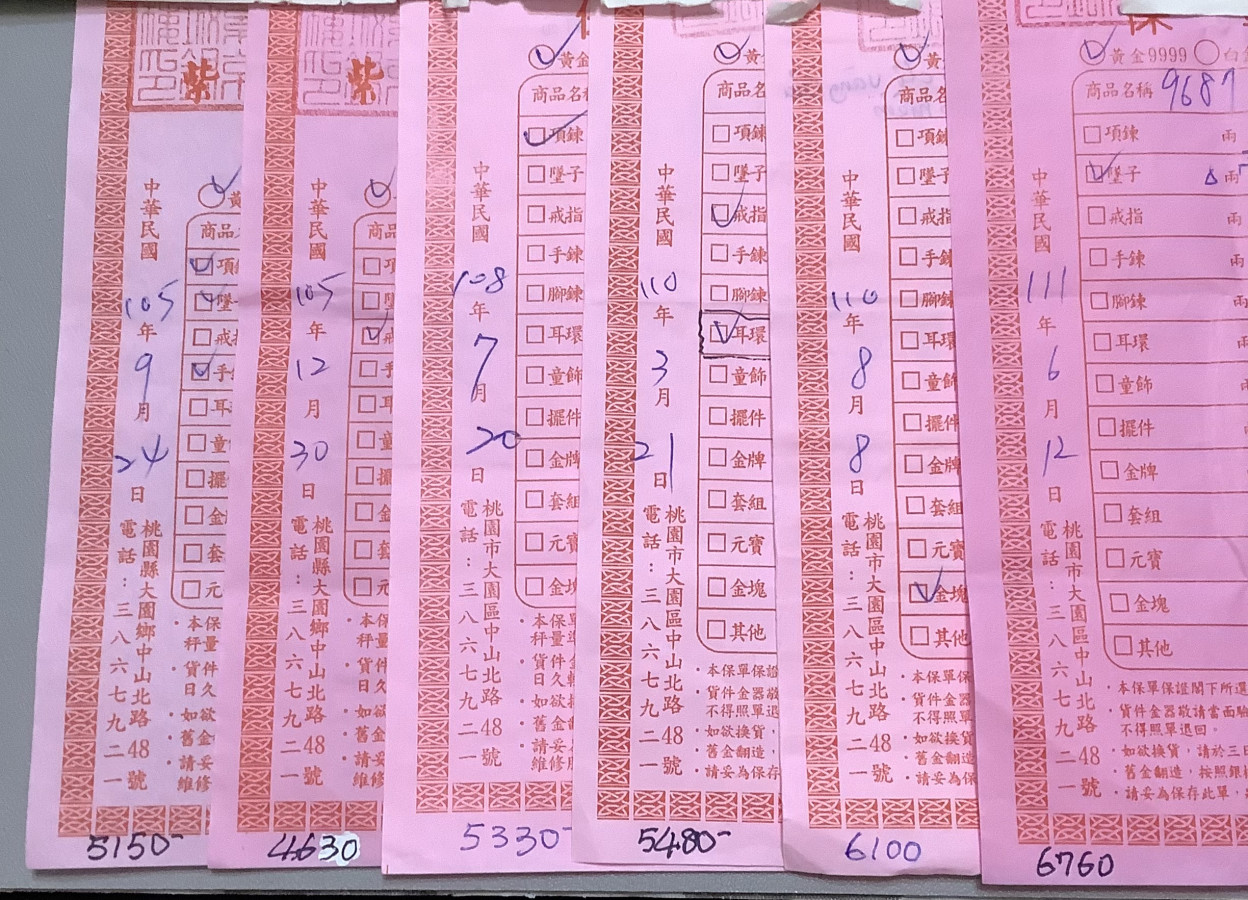 紫
黃
商品
項
墜
戒指
手
耳
童
擺
金
套
元
中華民國
105
年
9
月
24
日
桃園縣大園鄉中山北路48號
電話：三八六七九二一
本保
秤量
貨件
日久
如欲
舊金
請妥
維修
5150-
紫
商品
項
墜
戒
手
耳
童
擺
金
套
元
中華民國
105
年
12
月
30
日
桃園縣大園鄉中山北路48號
電話：三八六七九二一
本保
秤量
貨件
日久
如欲
舊金
請妥
維修
4630
黃金
商品名
項鍊
墜子
戒指
手鍊
腳鍊
耳環
童飾
擺件
金牌
套組
元寶
金塊
其他
中華民國
108
年
7
月
20
日
桃園市大園區中山北路48號
電話：三八六七九二一
本保
秤量
貨件
日久
如欲
舊金
請妥
維修
5330-
黃
商品名
項鍊
墜子
戒指
手鍊
腳鍊
耳環
童飾
擺件
金牌
套組
元寶
金塊
其他
中華民國
110
年
3
月
21
日
桃園市大園區中山北路48號
電話：三八六七九二一
本保單保證
貨件金器敬
不得照單退
如欲換貨，
舊金翻造，
請妥為保存
5480-
黃金
商品名
項鍊
墜子
戒指
手鍊
腳鍊
耳環
童飾
擺件
金牌
套組
元寶
金塊
其他
中華民國
110
年
8
月
8
日
桃園市大園區中山北路48號
電話：三八六七九二一
本保單保
貨件金器
不得照單
如欲換貨
舊金翻造
請妥為保
6100
保
黃金9999 白金
商品名稱 9687
項鍊 兩
墜子 兩
戒指 兩
手鍊 兩
腳鍊 兩
耳環 兩
童飾
擺件
金牌
套組
元寶
金塊
其他
中華民國
111
年
6
月
12
日
桃園市大園區中山北路48號
電話：三八六七九二一
本保單保證閣下所選
貨件金器敬請當面驗
不得照單退回。
如欲換貨，請於三日
舊金翻造，按照銀樓
請妥為保存此單，
6760